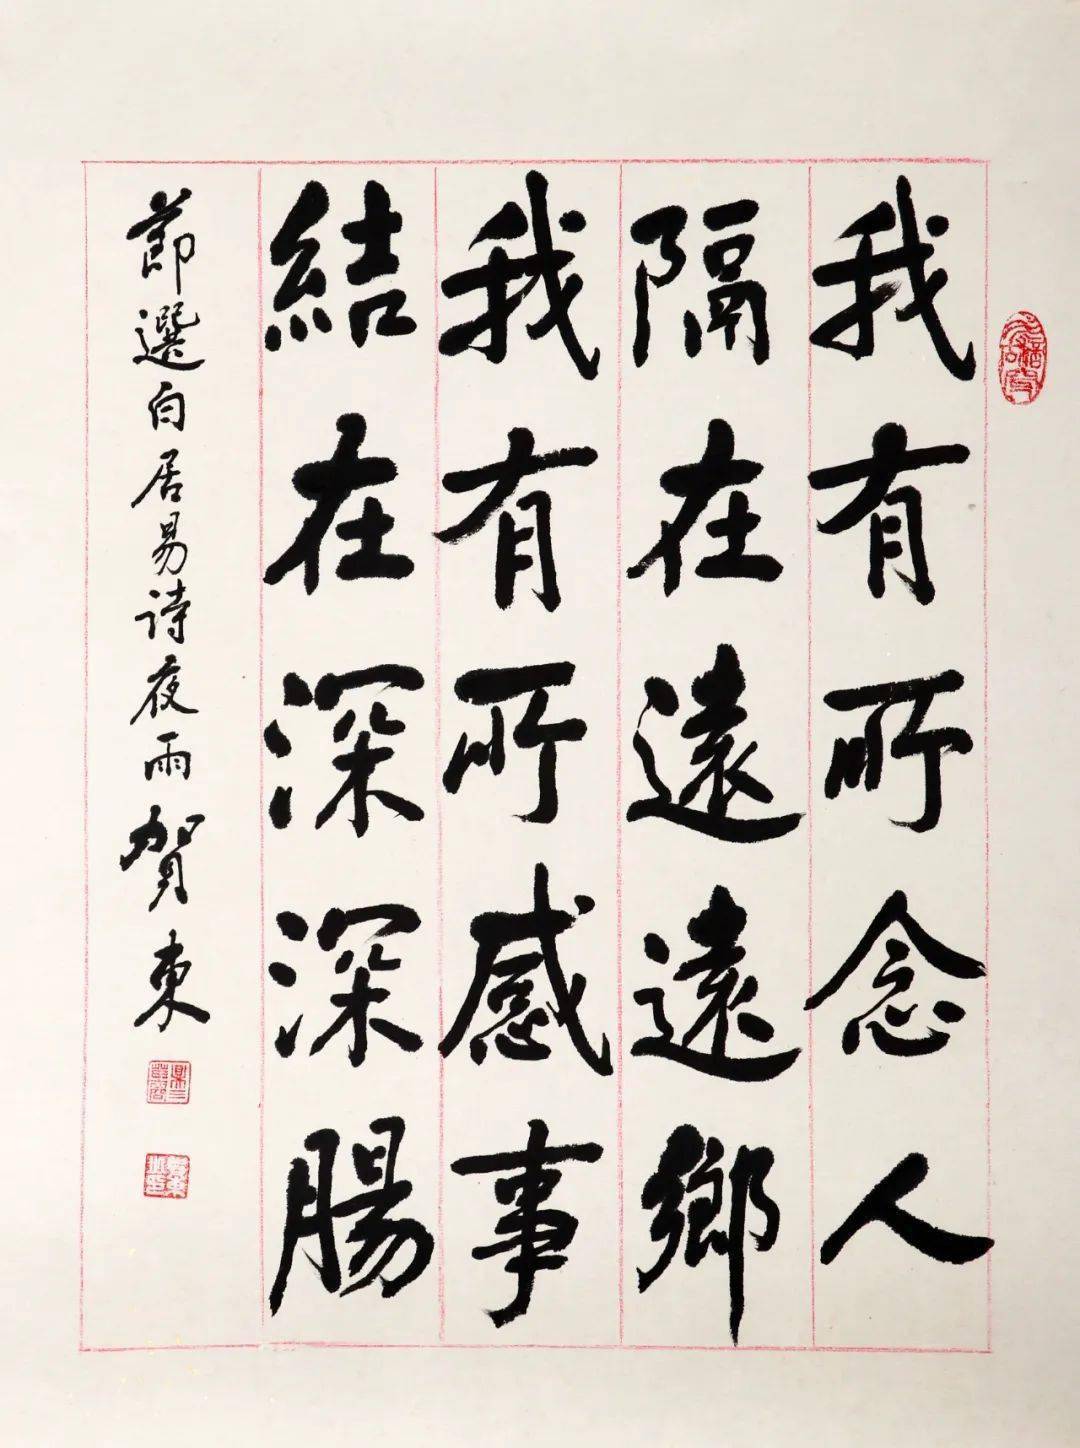 我有所念人
隔在遠遠鄉
我有所感事
結在深深腸
節選白居易诗夜雨賀東